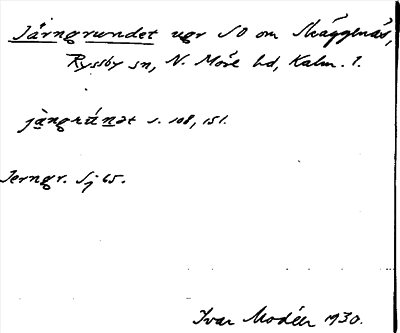 Järngrundet ugr SO om Skäggenäs,
Ryssby sn, N. Möre hd, Kalm. l.
jàngrúnət s. 108, 151.
Jerngr. Sj 65.
Ivar Modéer 1930.